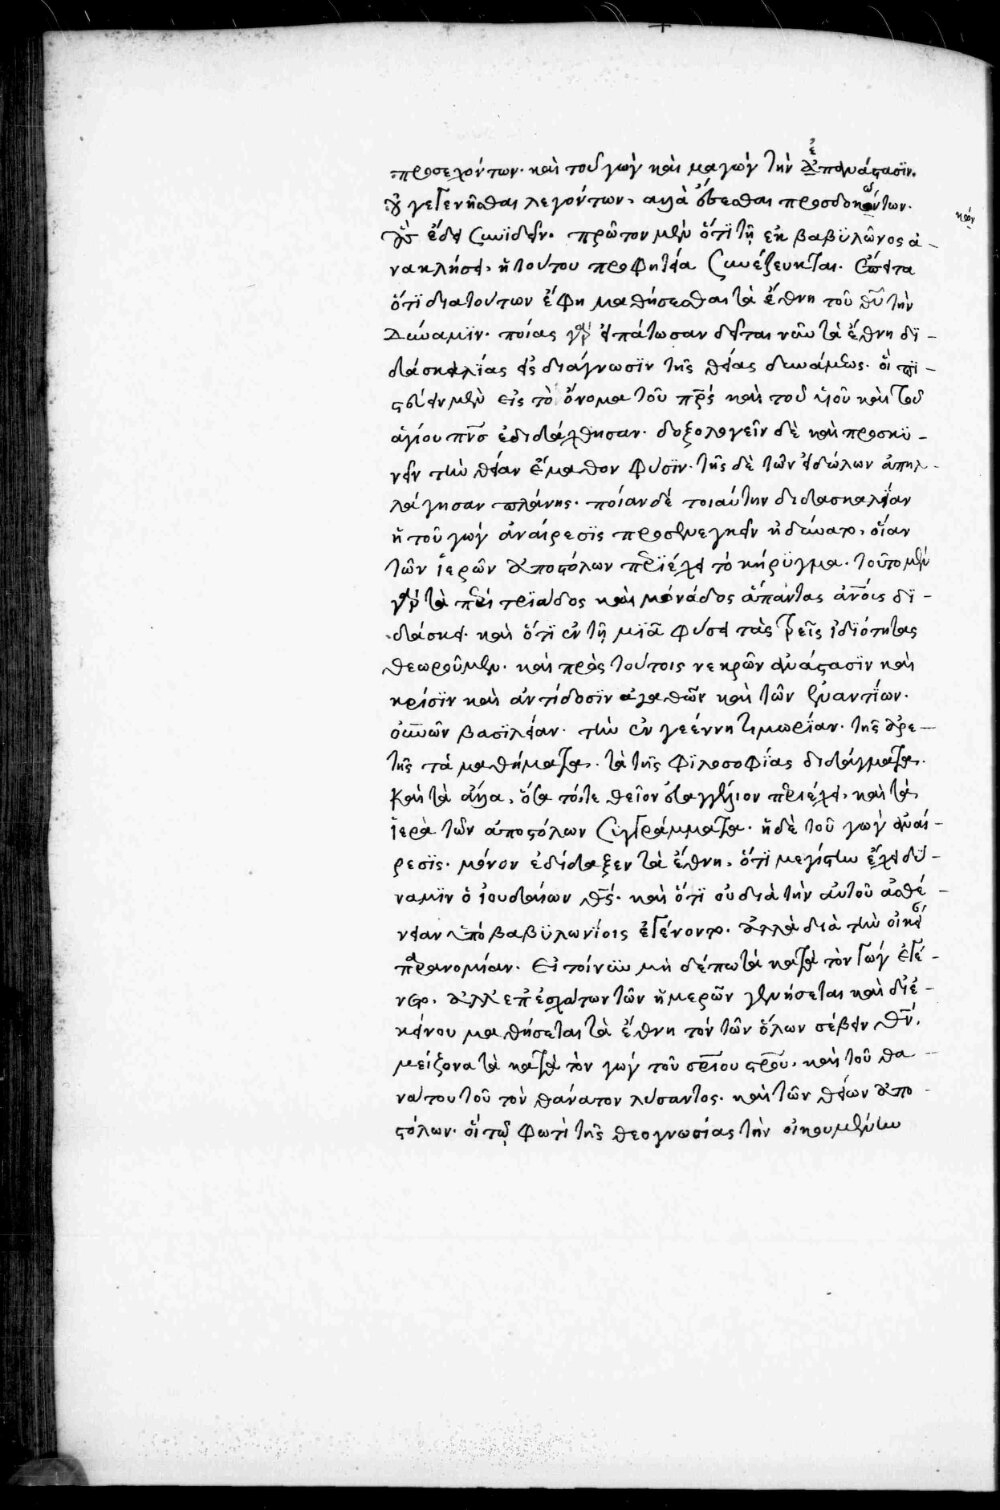 προσεχόντων· καὶ τοῦ γὼγ καὶ μαγὼγ τὴν ἐπανάστασιν.
οὐ γεγενῆσθαι λεγόντων, ἀλλὰ ἔσεσθαι προσδοκώντων.
οὓς ἔδει συνιδεῖν. πρῶτον μὲν ὅτι τῇ ἐκ βαβυλῶνος ἀ-
νακλήσει, ἡ τούτου προφητεία συνέζευκται. ἔπειτα
ὅτι διὰ τούτων ἔφη μαθήσεσθαι τὰ ἔθνη τοῦ θυ τὴν
δύναμιν. ποίας γὰρ εἰπάτωσαν δεῖται νῦν τὰ ἔθνη δι-
δασκαλίας εἰς διάγνωσιν τῆς θείας δυνάμεως. οἳ πι-
στεύειν μὲν εἰς τὸ ὄνομα τοῦ πρς καὶ τοῦ υἱοῦ καὶ τοῦ
ἁγίου πνς ἐδιδάχθησαν. δοξολογεῖν δὲ καὶ προσκυ-
νεῖν τὴν θείαν ἔμαθον φύσιν. τῆς δὲ τῶν εἰδώλων ἀπηλ-
λάγησαν πλάνης. ποίαν δὲ τοιαύτην διδασκαλίαν
ἡ τοῦ γὼγ ἀναίρεσις προσενεγκεῖν ἠδύνατο, οἵαν
τῶν ἱερῶν ἀποστόλων περιέχει τὸ κήρυγμα. τοῦτο μὲν
γὰρ τὰ περὶ τριάδος καὶ μονάδος ἅπαντας ἀνοις δι-
δάσκει. καὶ ὅτι ἐν τῇ μιᾷ φύσει τὰς τρεῖς ἰδιότητας
θεωροῦμεν. καὶ πρὸς τούτοις νεκρῶν ἀνάστασιν καὶ
κρίσιν καὶ ἀντίδοσιν ἀγαθῶν καὶ τῶν ἐναντίων.
οὐνῶν βασιλείαν. τὴν ἐν γεέννῃ τιμωρίαν. τῆς ἀρε-
τῆς τὰ μαθήματα. τὰ τῆς φιλοσοφίας διδάγματα.
καὶ τὰ ἄλλα, ὅσα τό τε θεῖον εὐαγγέλιον περιέχει, καὶ τὰ
ἱερὰ τῶν ἀποστόλων συγγράμματα. ἡ δὲ τοῦ γὼγ ἀναί-
ρεσις. μόνον ἐδίδαξεν τὰ ἔθνη, ὅτι μεγίστην ἔχει δύ-
ναμιν ὁ ἰουδαίων θς. καὶ ὅτι οὐ διὰ τὴν αὐτοῦ ἀσθέ-
νειαν ὑπὸ βαβυλωνίοις ἐγένοντο. ἀλλὰ διὰ τὴν οἰκείαν
παρανομίαν. εἰ τοίνυν μὴ δέπω τὰ κατὰ τὸν γὼγ ἐγέ-
νετο, ἀλλ' ἐπ' ἐσχάτων τῶν ἡμερῶν γενήσεται καὶ δι' ἐ-
κείνου μαθήσεται τὰ ἔθνη τὸν τῶν ὅλων σέβειν θν,
μείζονα τὰ κατὰ τὸν γὼγ τοῦ σριου στρου. καὶ τοῦ θα-
νάτου τοῦ τὸν θάνατον λύσαντος. καὶ τῶν θείων ἀπο-
στόλων. οἳ τῷ φωτὶ τῆς θεογνωσίας τὴν οἰκουμένην